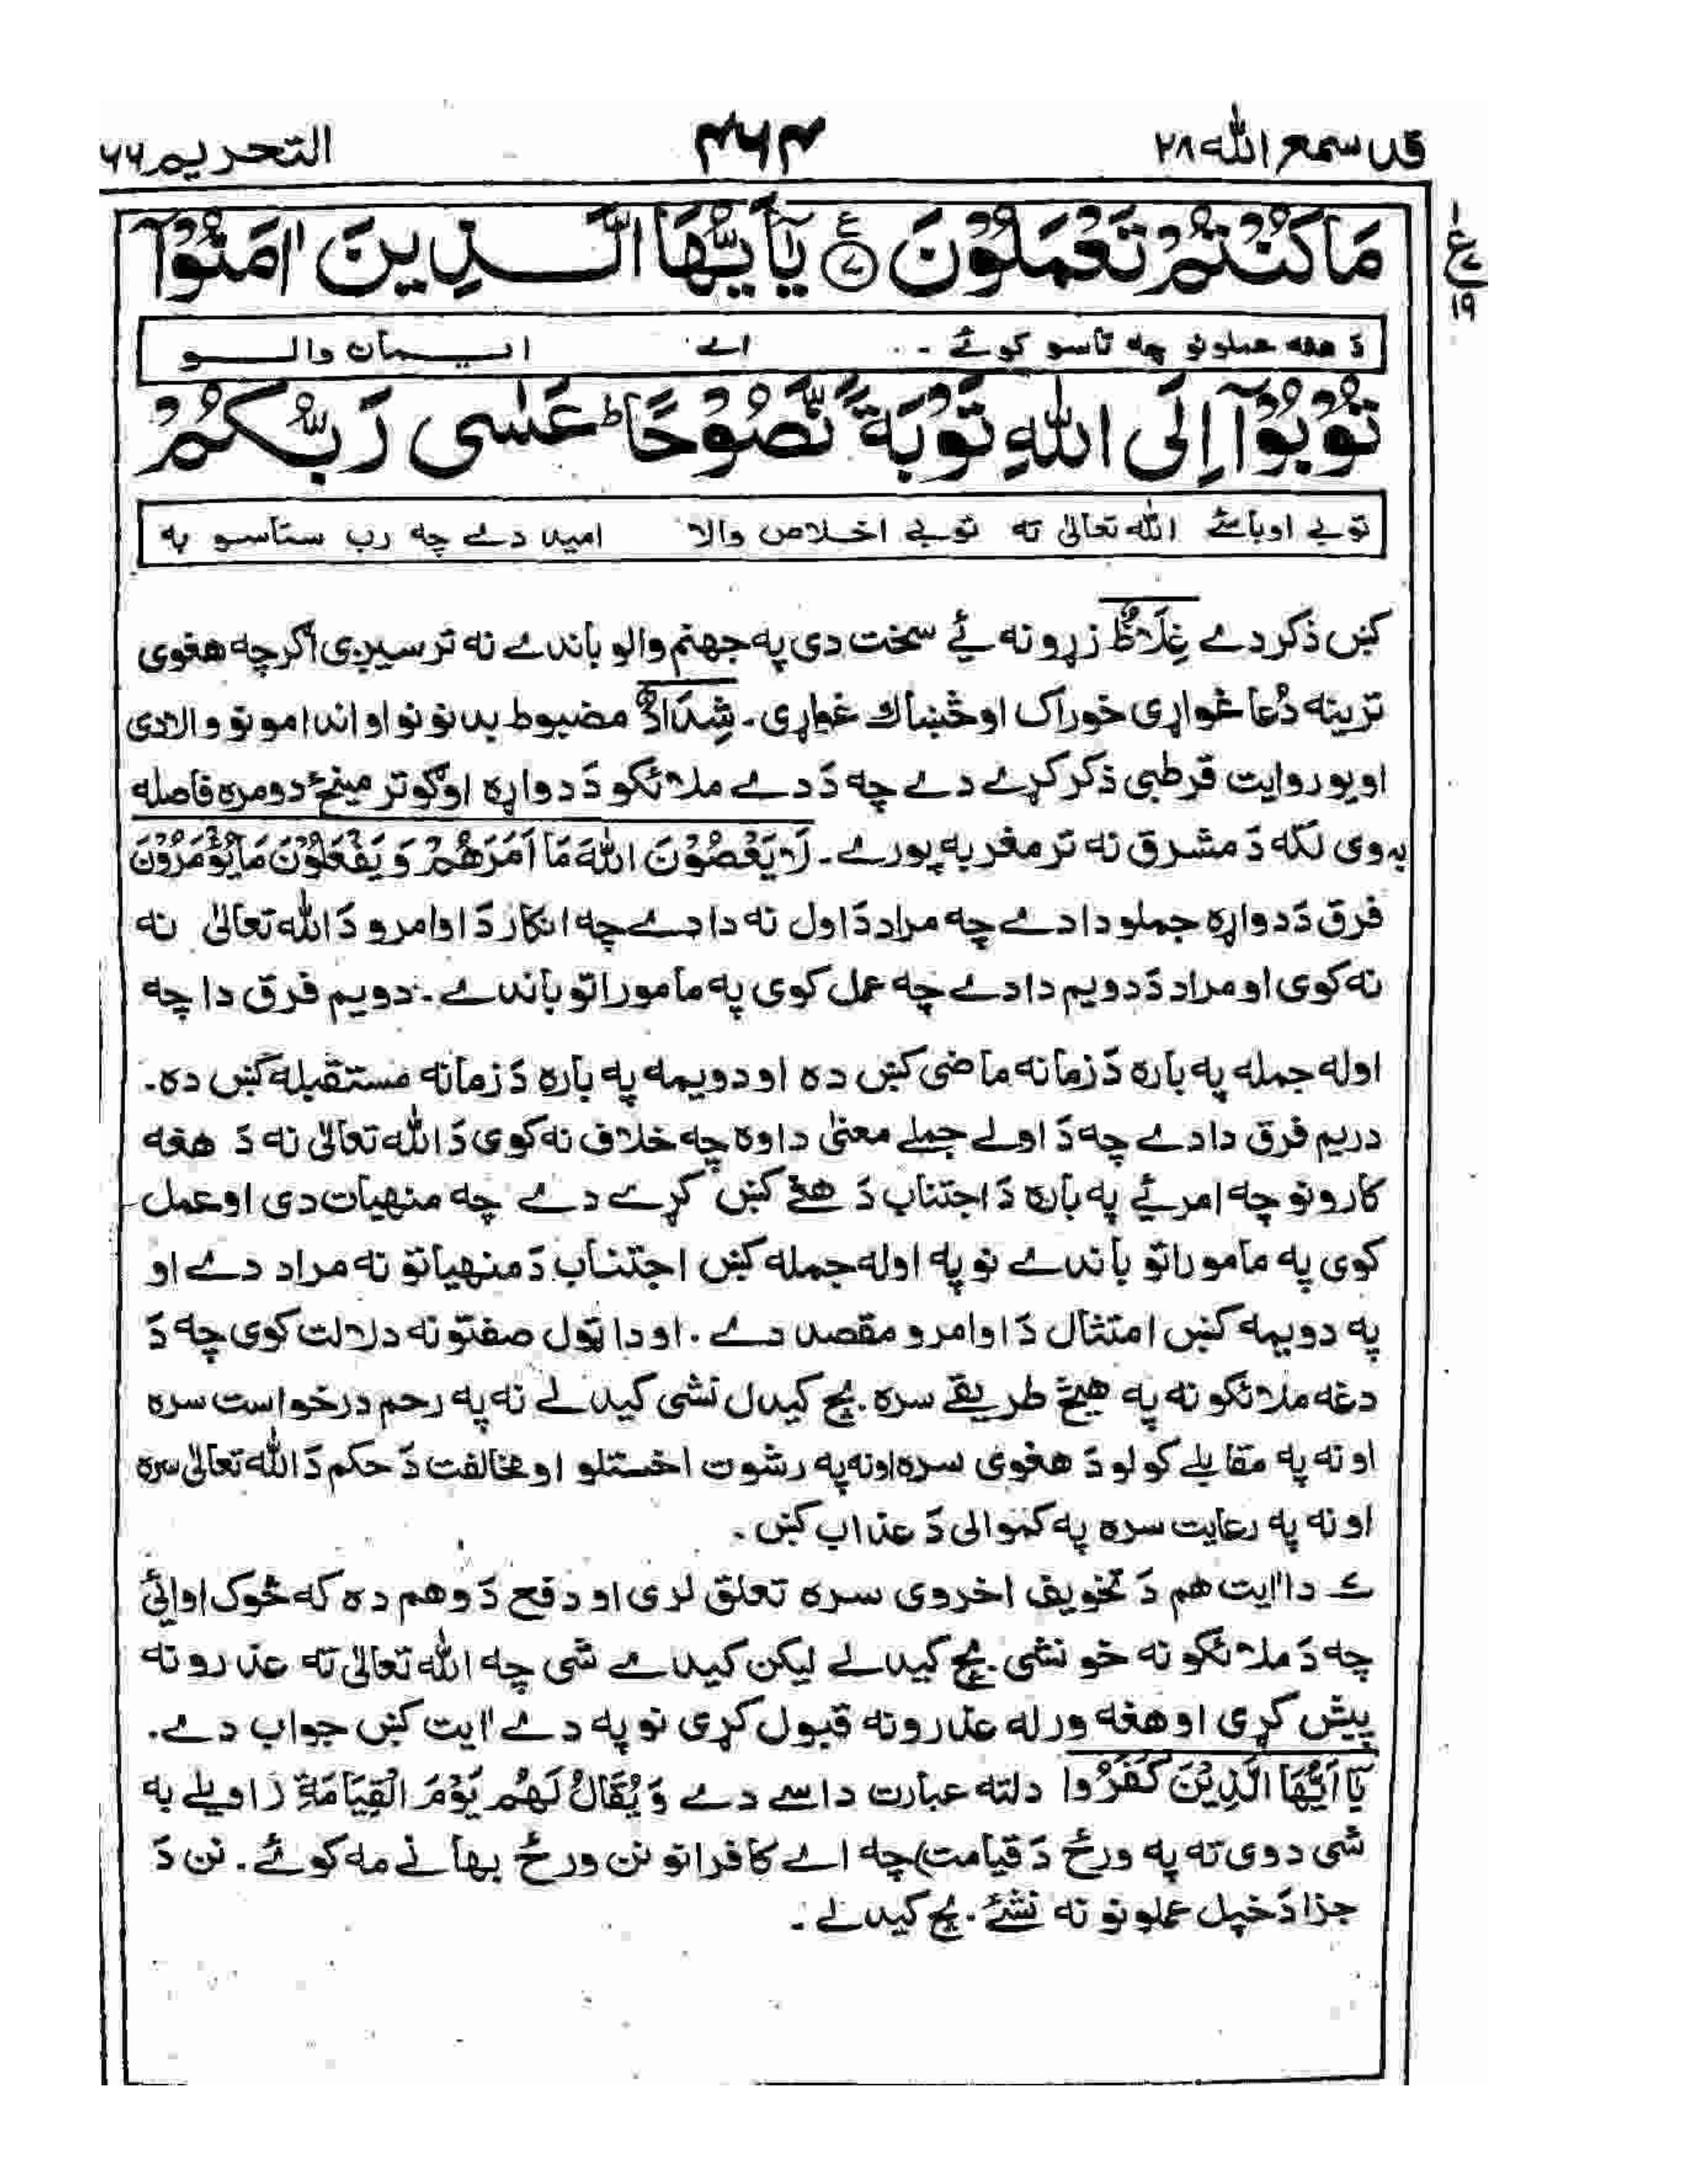 قد سمع الله ٢٨ ۴۶۴ التحریم ٦٦
ع ٧ ١٩
مَا كُنْتُمْ تَعْمَلُوْنَ ۧ ﴿٧﴾ يٰۤاَيُّهَا الَّذِيْنَ اٰمَنُوْۤا
دَ هغه عملونو چه تاسو کوئے ۔ اے ایمان والو
تُوْبُوْۤا اِلَى اللّٰهِ تَوْبَةً نَّصُوْحًا ؕ عَسٰى رَبُّكُمْ
توبے اوباسئے الله تعالیٰ ته توبے اخلاص والا امید دے چه رب ستاسو به
کښ ذکر دے غِلَاظٌ زړونه ئے سخت دی په جهنم والو باندے نه ترسیږی اگرچه هغوی
ترینه دُعا غواړی خوراک او څښاک غواړی۔ شِدَادٌ مضبوط بدنونو او اندامونو والا دی
او یو روایت قرطبی ذکر کړے دے چه دَ دے ملائکو دَ دواړه اوګو تر مینځ دومره فاصله
به وی لکه دَ مشرق نه تر مغربه پورے۔ لَا يَعْصُوْنَ اللّٰهَ مَا اَمَرَهُمْ وَ يَفْعَلُوْنَ مَا يُؤْمَرُوْنَ
فرق دَ دواړه جملو دا دے چه مراد دَ اول نه دا دے چه انکار دَ اوامرو دَ الله تعالیٰ نه
نه کوی او مراد دَ دویم دا دے چه عمل کوی په ماموراتو باندے۔ دویم فرق دا چه
اوله جمله په باره دَ زمانه ماضی کښ ده او دویمه په باره دَ زمانه مستقبله کښ ده۔
دریم فرق دا دے چه دَ اولے جملے معنیٰ دا وه چه خلاف نه کوی دَ الله تعالیٰ نه دَ هغه
کارونو چه امر ئے په باره دَ اجتناب دَ هغے کښ کړے دے چه منهیات دی او عمل
کوی په ماموراتو باندے نو په اوله جمله کښ اجتناب دَ منهیاتو نه مراد دے او
په دویمه کښ امتثال دَ اوامرو مقصد دے ۔ او دا ټول صفتونه دلالت کوی چه دَ
دغه ملائکو نه په هیڅ طریقے سره بچ کیدل نشی کیدلے نه په رحم درخواست سره
او نه په مقابلے کولو دَ هغوی سره او نه په رشوت اخستلو او مخالفت دَ حکم دَ الله تعالیٰ سره
او نه په رعایت سره په کموالی دَ عذاب کښ ۔
ے دا اٰیت هم دَ تخویف اخروی سره تعلق لری او دفع دَ وهم ده که څوک اوائی
چه دَ ملائکو نه خو نشی بچ کیدلے لیکن کیدے شی چه الله تعالیٰ ته عذرونه
پیش کړی او هغه ورله عذرونه قبول کړی نو په دے اٰیت کښ جواب دے۔
يٰۤا اَيُّهَا الَّذِيْنَ كَفَرُوا دلته عبارت داسے دے وَ يُقَالُ لَهُمْ يَوْمَ الْقِيَامَةِ (اویلے به
شی دوی ته په ورځ دَ قیامت) چه اے کافرانو نن ورځ بهانے مه کوئے۔ نن دَ
جزا دَ خپل عملونو نه نشئے بچ کیدلے ۔